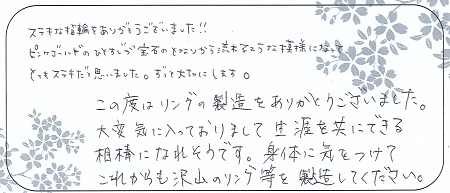 ステキな指輪をありがとうございました!!
ピンクゴールドのひとすじが宝石のとなりから流れるような模様になって
とてもステキだと思いました。ずっと大切にします。
この度はリングの製造をありがとうございました。
大変気に入っておりまして生涯を共にできる
相棒になれそうです。身体に気をつけて
これからも沢山のリング等を製造してください。